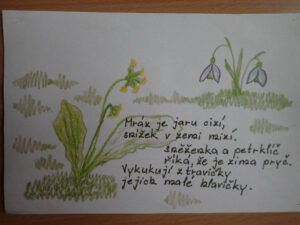 Mráz je jaru cizí,
snížek v zemi mizí.
Sněženka a petrklíč
říká, že je zima pryč.
Vykukují z travičky
jejich malé hlavičky.